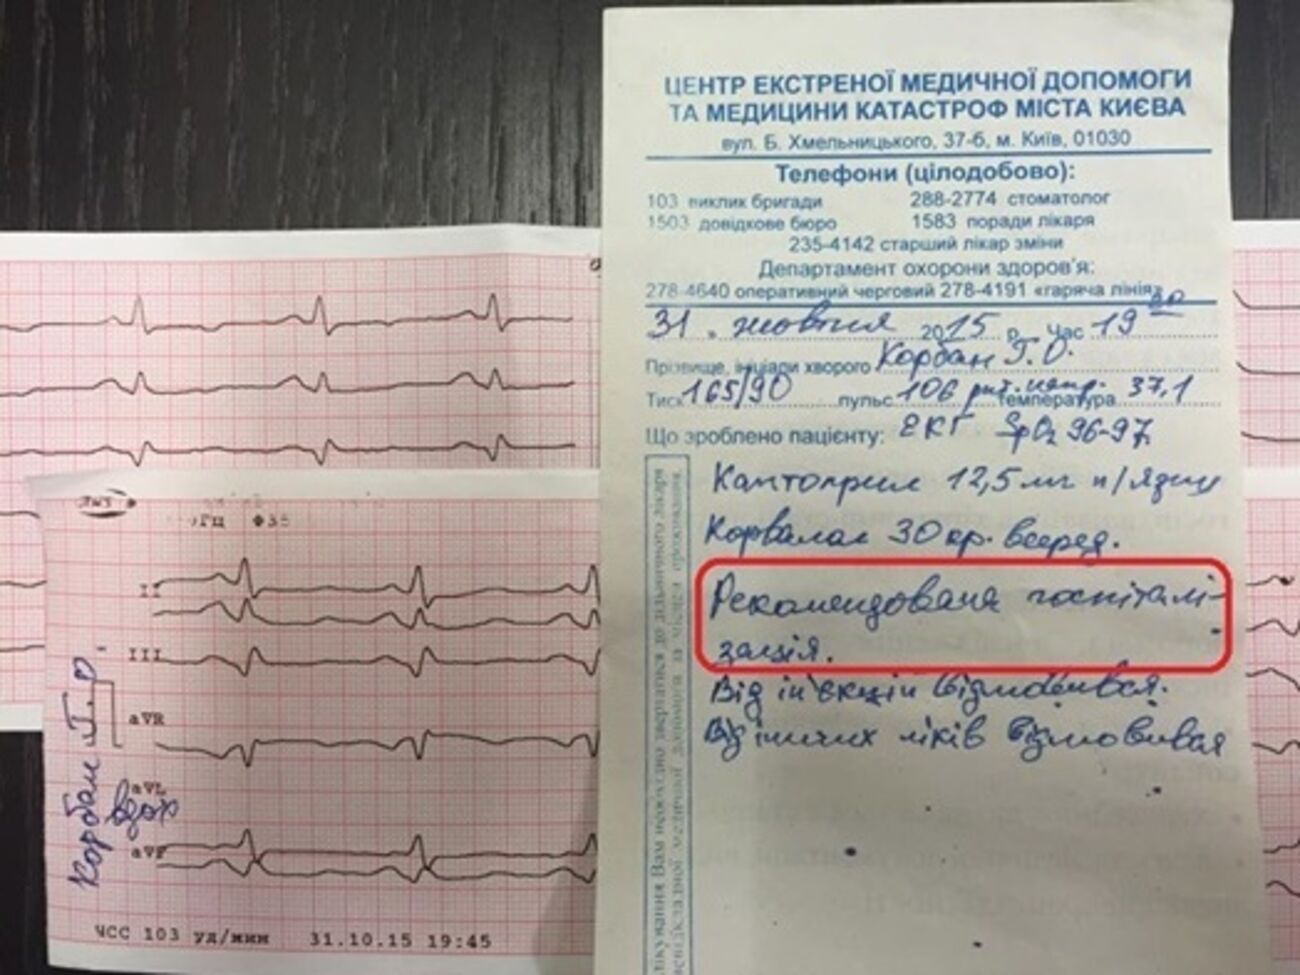 ЦЕНТР ЕКСТРЕНОЇ МЕДИЧНОЇ ДОПОМОГИ
ТА МЕДИЦИНИ КАТАСТРОФ МІСТА КИЄВА
вул. Б. Хмельницького, 37-б, м. Київ, 01030
Телефони (цілодобово):
103 виклик бригади 288-2774 стоматолог
1503 довідкове бюро 1583 поради лікаря
235-4142 старший лікар зміни
Департамент охорони здоров'я:
278-4640 оперативний черговий 278-4191 «гаряча лінія»
31 жовтня 2015 р. Час 19
Прізвище, ініціали хворого Корбан Г.О.
Тиск 165/90 пульс 106 температура 37,1
Що зроблено пацієнту: ЕКГ SpO2 96-97
Каптоприл 12,5 мг п/язик
Корвалол 30 кр. всеред.
Рекомендована госпіталі-
зація.
Від ін'єкцій відмовився.
Від інших ліків відмовився
II
III
aVR
aVL
aVF
Корбан Г.О.
вдох
ЧСС 103 уд/мин 31.10.15 19:45